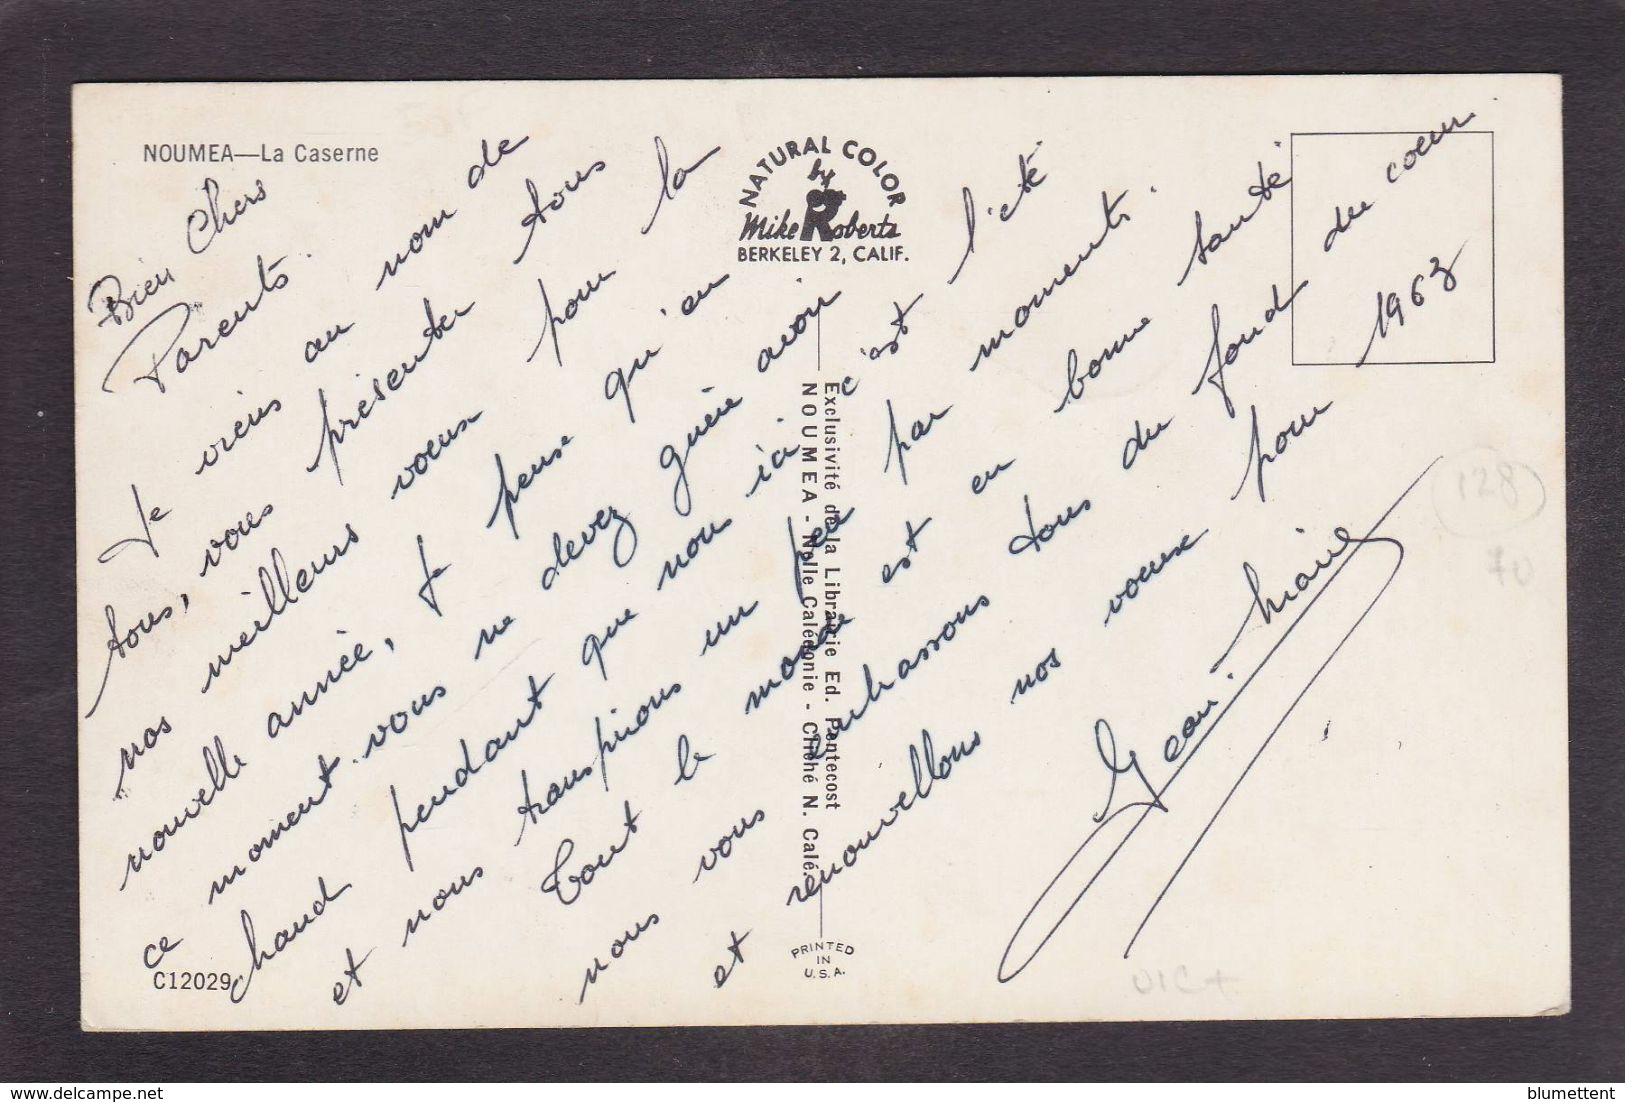 NOUMEA—La Caserne
NATURAL COLOR
by
Mike Roberts
BERKELEY 2, CALIF.
Bien Chers
Parents.
Je viens au nom de
tous, vous présenter tous
nos meilleurs voeux pour la
nouvelle année, Je pense qu'en
ce moment vous ne devez guère avoir
chaud pendant que nous ici c'est l'été
et nous transpirons un peu par moments.
Tout le monde est en bonne santé
nous vous embrassons tous du fond du coeur
et renouvellons nos voeux pour 1963
Jean. Marie
Exclusivité de la Librairie Ed. Pentecost
NOUMEA - Nelle Calédonie - Cliché N. Calé.
PRINTED
IN
U.S.A.
C12029
128
70
delcampe.net
blumettent